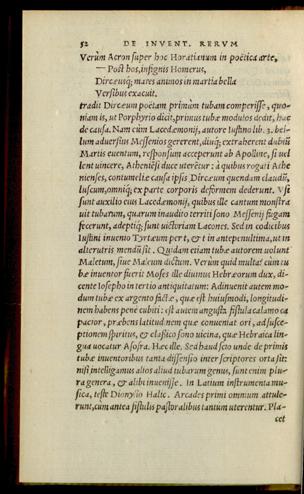 52 DE INVENT. RERVM
Verùm Acron super hoc Horatianum in poëtica arte,
— Post hos, insignis Homerus,
Dircæusq; mares animos in martia bella
Versibus exacuit.
tradit Dircæum poëtam primùm tubam comperisse, quo-
niam is, ut Porphyrio dicit, primus tubæ modulos dedit, hac
de causa. Nam cùm Lacedæmonij, autore Iustino lib. 3. bel-
lum aduersius Messenios gererent, diuq; extraherent dubiũ
Martis euentum, responsum acceperunt ab Apolline, si uel
lent uincere, Atheniẽsi duce uterẽtur: à quibus rogati Athe
nienses, contumeliæ causa ipsis Dircæum quendam claudũ,
luscum, omniq; ex parte corporis deformem dederunt. Vsi
sunt auxilio eius Lacedæmonij, quibus ille cantum monstra
uit tubarum, quarum inaudito territi sono Messenij fugam
fecerunt, adeptiq; sunt uictoriam Lacones. Sed in codicibus
Iustini inuenio Tyrtæum per t, & t in antepenultima, ut in
alterutris mendũ sit. Quidam etiam tubæ autorem uolunt
Maletum, siue Maleum dictum. Verùm quid multa? cùm tu
bæ inuentor fuerit Moses ille diuinus Hebræorum dux, di-
cente Iosepho in tertio antiquitatum: Adinuenit autem mo
dum tubæ ex argento factæ, quæ est huiusmodi, longitudi-
nem habens penè cubiti: est autem angusta fistula calamo ca
pacior, præbens latitudinem quæ conueniat ori, ad susce-
ptionem spiritus, & classico sono uicina, quæ Hebraica lin
gua uocatur Asosra. Hæc ille. Sed haud scio unde de primis
tubæ inuentoribus tanta dissensio inter scriptores orta sit:
nisi intelligamus alios aliud tubarum genus, sunt enim plu-
ra genera, & alibi inuenisse. In Latium instrumenta mu-
sica, teste Dionysio Halic. Arcades primi omnium attule-
runt, cum antea fistulis pastoralibus tantum uterentur. Pla-
cet